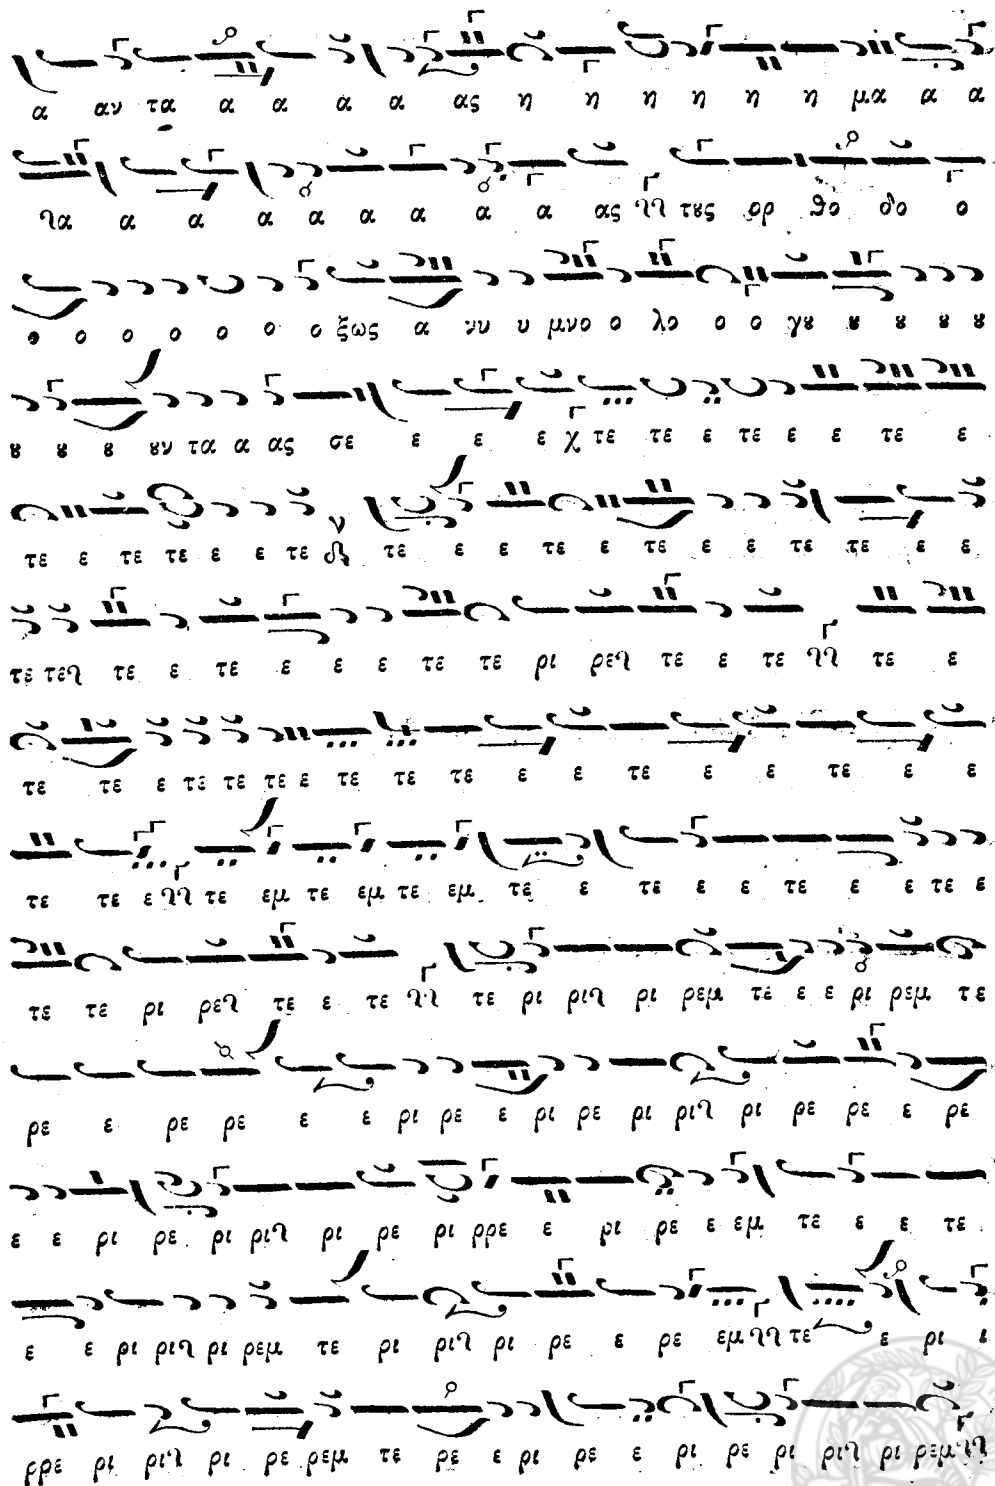 α αν τα α α α α ας η η η η η η μα α α
γα α α α α α α α α ας γγ τȣς ορ θο δο ο
ο ο ο ο ο ο ο ξως α νυ υ μνο ο λο ο ο γȣ ȣ ȣ ȣ ȣ
ȣ ȣ ȣ ȣν τα α ας σε ε ε ε χ τε τε ε τε ε ε τε ε
τε ε τε τε ε ε τε τε ε ε τε ε τε ε ε τε τε ε ε
τε τεγ τε ε τε ε ε ε τε τε ρι ρεγ τε ε τε γγ τε ε
τε τε ε τε τε τε ε τε τε τε ε ε τε ε ε τε ε ε
τε τε ε γγ τε εμ τε εμ τε εμ τε ε τε ε ε τε ε ε τε ε
τε τε ρι ρεγ τε ε τε γγ τε ρι ριγ ρι ρεμ τε ε ε ρι ρεμ τε
ρε ε ρε ρε ε ε ρι ρε ε ρι ρε ρι ριγ ρι ρε ρε ε ρε
ε ε ρι ρε ρι ριγ ρι ρε ρι ρρε ε ρι ρε ε εμ τε ε ε τε
ε ε ρι ριγ ρι ρεμ τε ρι ριγ ρι ρε ε ρε εμ γγ τε ε ρι ι
ρρε ρι ριγ ρι ρε ρεμ τε ρε ε ρι ρε ε ρι ρε ρι ριγ ρι ρεμ γγ